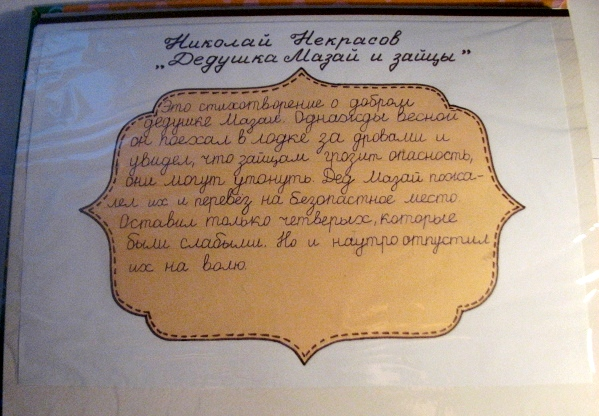 Николай Некрасов
„Дедушка Мазай и зайцы"
Это стихотворение о добром
дедушке Мазае. Однажды весной
он поехал в лодке за дровами и
увидел, что зайцам грозит опасность,
они могут утонуть. Дед Мазай пожа-
лел их и перевёз на безопастное место.
Оставил только четверых, которые
были слабыми. Но и наутро отпустил
их на волю.